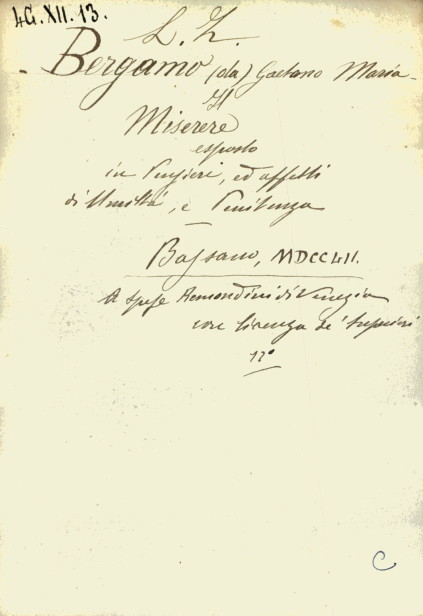 4G.XII.13.
L. Z.
Bergamo (da) Gaetano Maria
Il
Miserere
esposto
in Pensieri, ed affetti
di Umiltà, e Penitenza
Bassano, MDCCLII.
A spese Remondini di Venezia
con licenza de' Superiori
12°
C